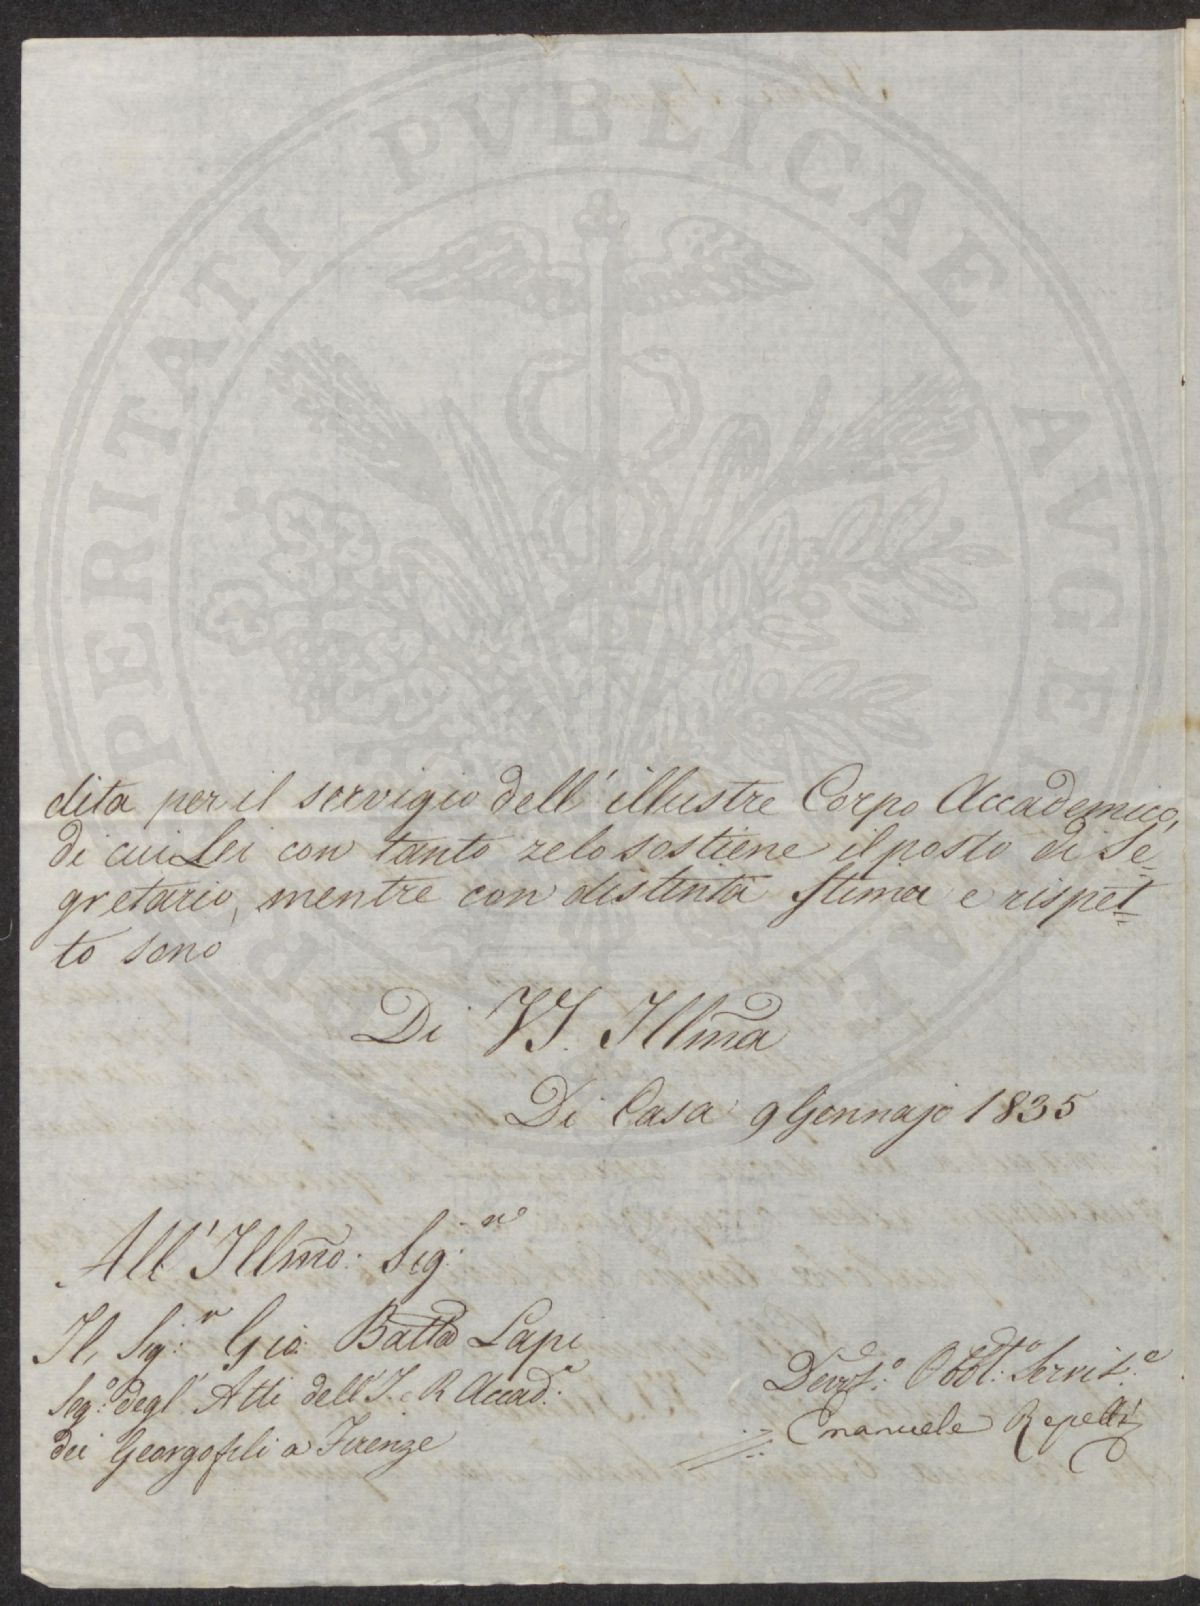 PROSPERITATI PUBLICAE AUGENDAE
dita per il servigio dell' illustre Corpo Accademico,
di cui Lei con tanto zelo sostiene il posto di Se=
gretario, mentre con distinta stima e rispet=
to sono
Di VS. Illma
Di Casa 9 Gennajo 1835
All' Illmo: Sig:re
Il, Sig:r Gio: Batta Lapi
Seg:o degl' Atti dell' I. e R. Accad:a
dei Georgofili a Firenze
Devot:o Obbl:o Servit:e
Emanuele Repetti